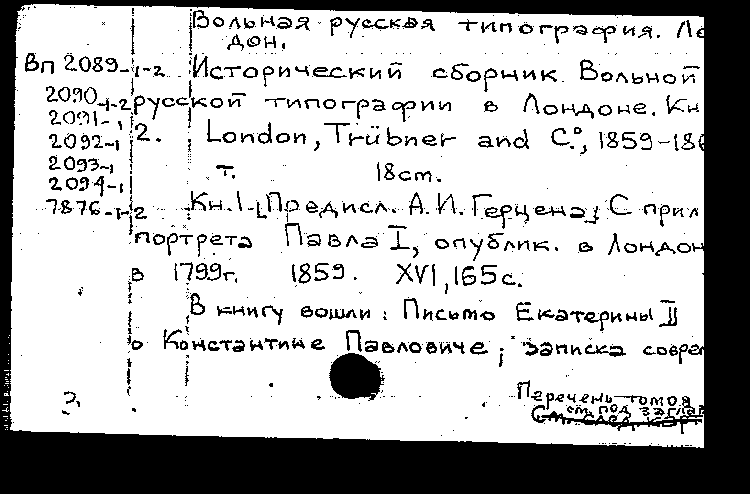 Вольная русская типография. Ло
дон.
Вп 2089-1-2 Исторический сборник Вольной
2090-1-2 русской типографии в Лондоне. Кн
2091-1
2092-1 2. London, Trübner and C°., 1859-186
2093-1 т. 18cm.
2094-1
7876-1-2 Кн.1-[Предисл. А.И. Герцена; С прил
портрета Павла I, опублик. в Лондон
в 1799г. 1859. XVI,165с.
В книгу вошли: Письмо Екатерины II
о Константине Павловиче; записка соврем
Перечень томов
см. под заглав
См. след. карт